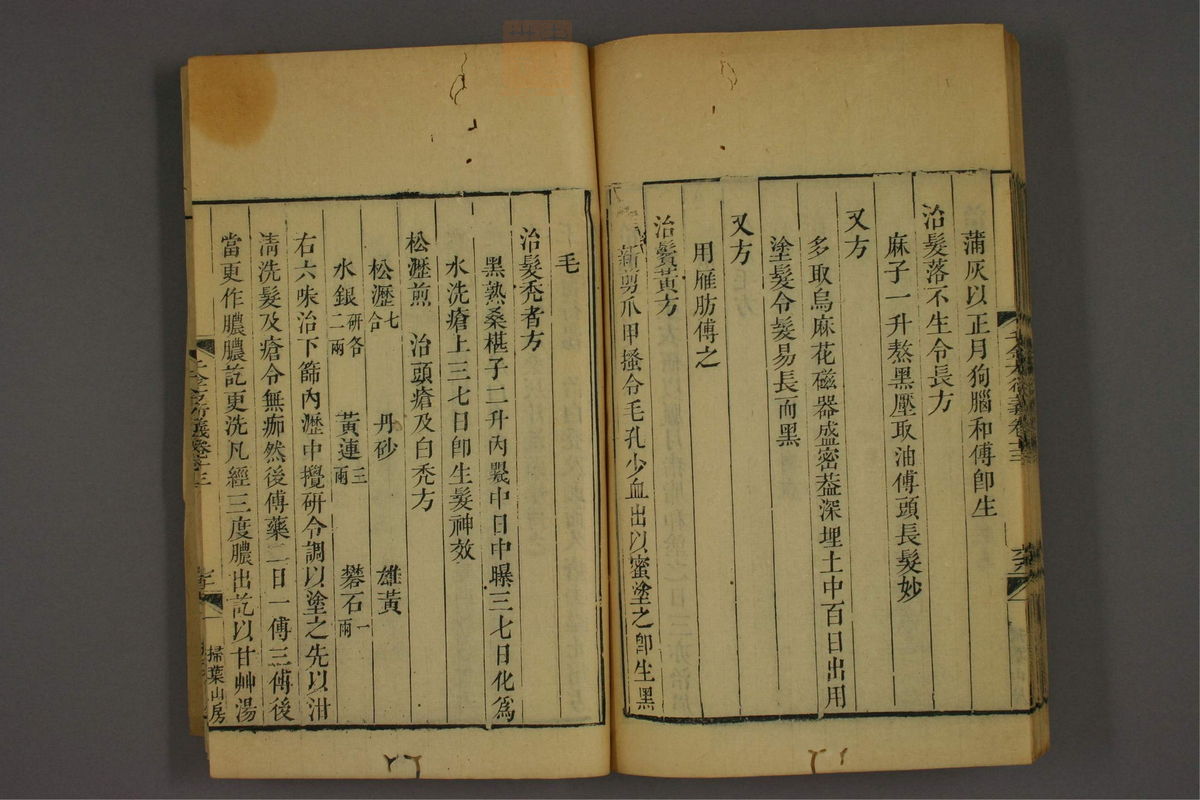 蒲灰以正月狗腦和傅卽生
治髮落不生令長方
麻子一升熬黑壓取油傅頭長髮妙
又方
多取烏麻花磁器盛密葢深埋土中百日出用
塗髮令髮易長而黑
又方
用雁肪傅之
治鬢黃方
新剪爪甲搔令毛孔少血出以蜜塗之卽生黑
毛
治髮禿者方
黑熟桑椹子二升內甖中日中曝三七日化爲
水洗瘡上三七日卽生髮神效
松瀝煎 治頭瘡及白禿方
松瀝七合 丹砂 雄黃
水銀研各二兩 黃連三兩 礬石一兩
右六味治下篩內瀝中攪研令調以塗之先以泔
淸洗髮及瘡令無痂然後傅藥二日一傅三傅後
當更作膿膿訖更洗凡經三度膿出訖以甘艸湯
千金方衍義卷十三
掃葉山房